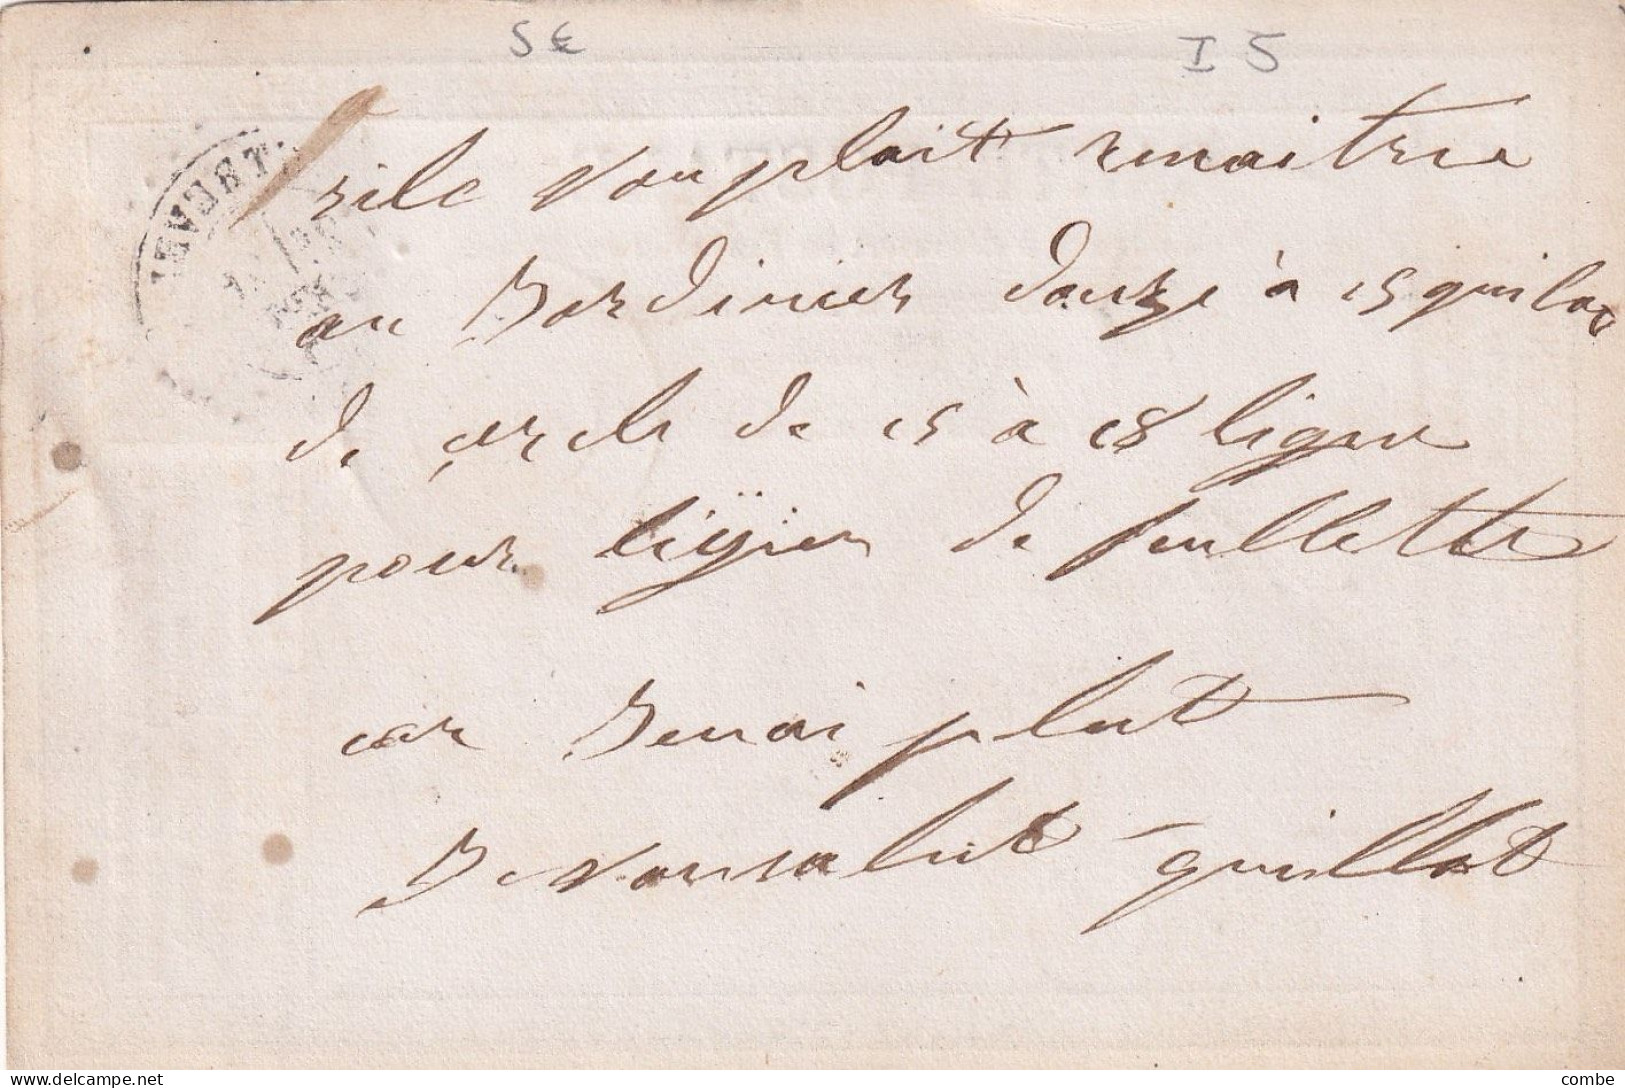 5€
I 5
sile vou plait remaitre
au Bordinier douze à 15 quilos
de cercle de 15 à 18 ligne
pour liyier de feullette
car Benai plut
De vou salut guillot
combe
www.delcampe.net